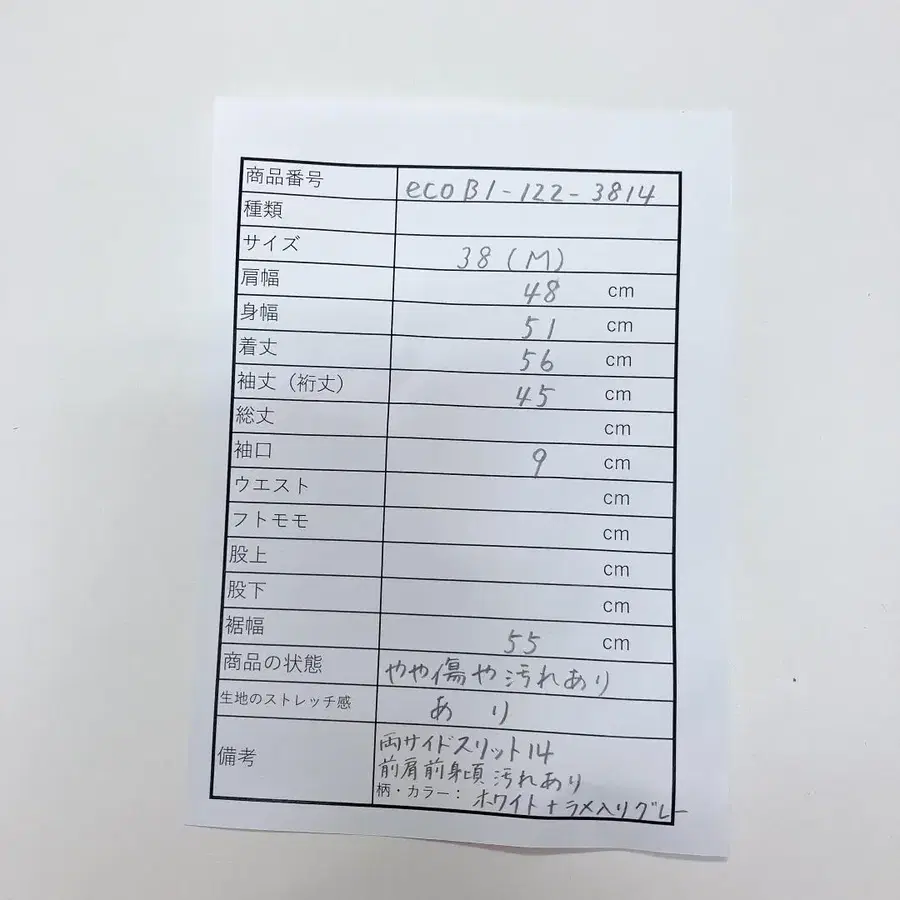 商品番号 eco B1-122-3814
種類
サイズ 38(M)
肩幅 48 cm
身幅 51 cm
着丈 56 cm
袖丈（裄丈） 45 cm
総丈 cm
袖口 9 cm
ウエスト cm
フトモモ cm
股上 cm
股下 cm
裾幅 55 cm
商品の状態 やや傷や汚れあり
生地のストレッチ感 あり
備考 両サイドスリット14
前肩前身頃汚れあり
柄・カラー： ホワイト+ラメ入りグレー